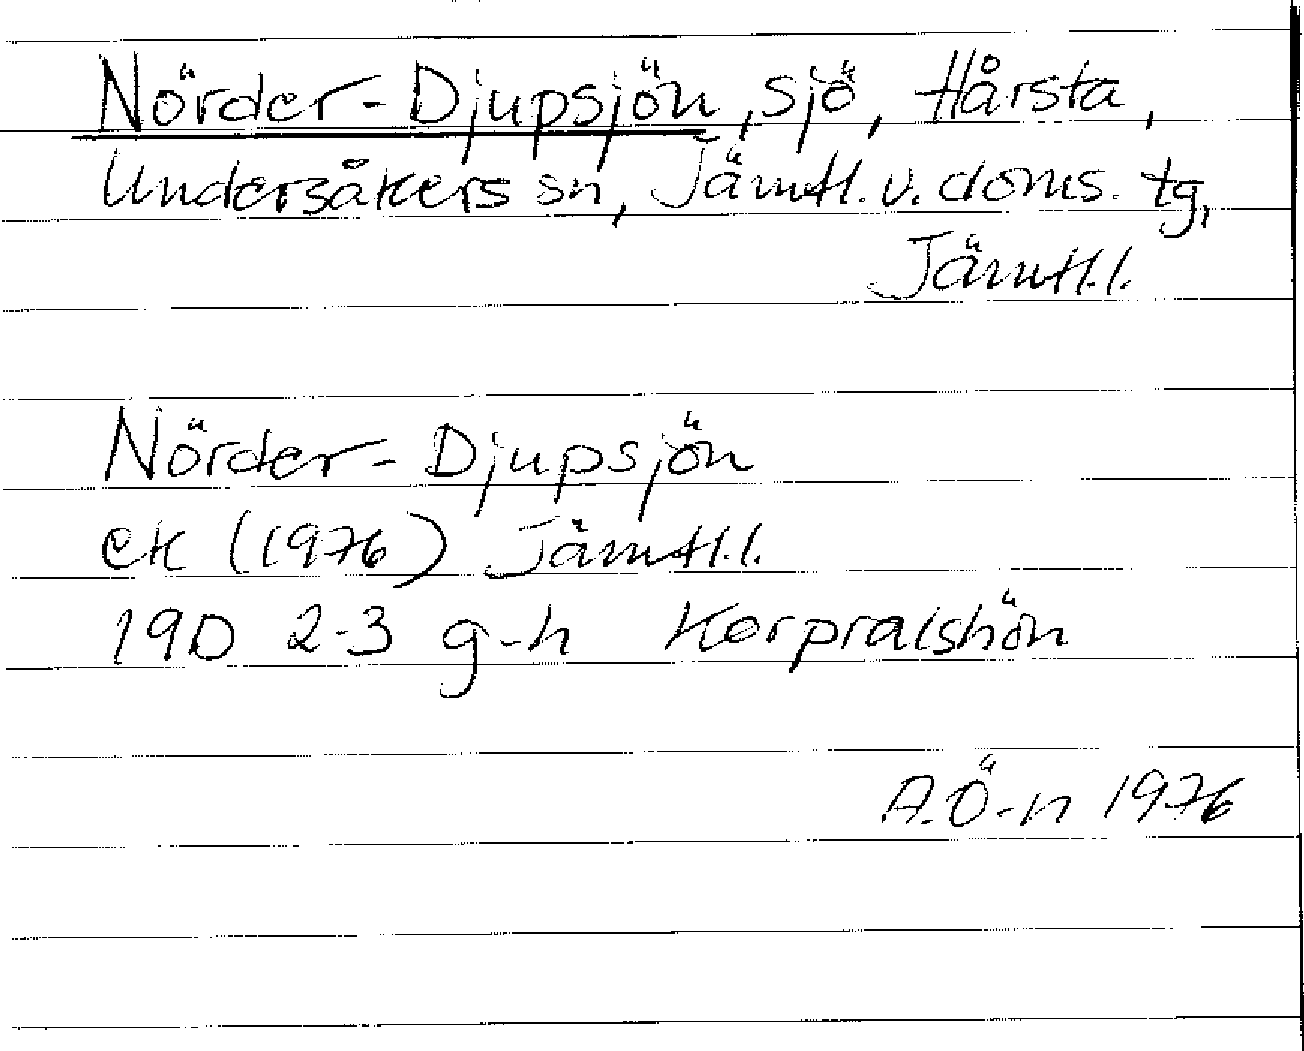 Nörder-Djupsjön, sjö, Hårsta,
Undersåkers sn, Jämtl. v. doms. tg,
Jämtl. l.
Nörder-Djupsjön
ek (1976) Jämtl. l.
19D 2-3 g-h Korpralshön
A.Ö-n 1976